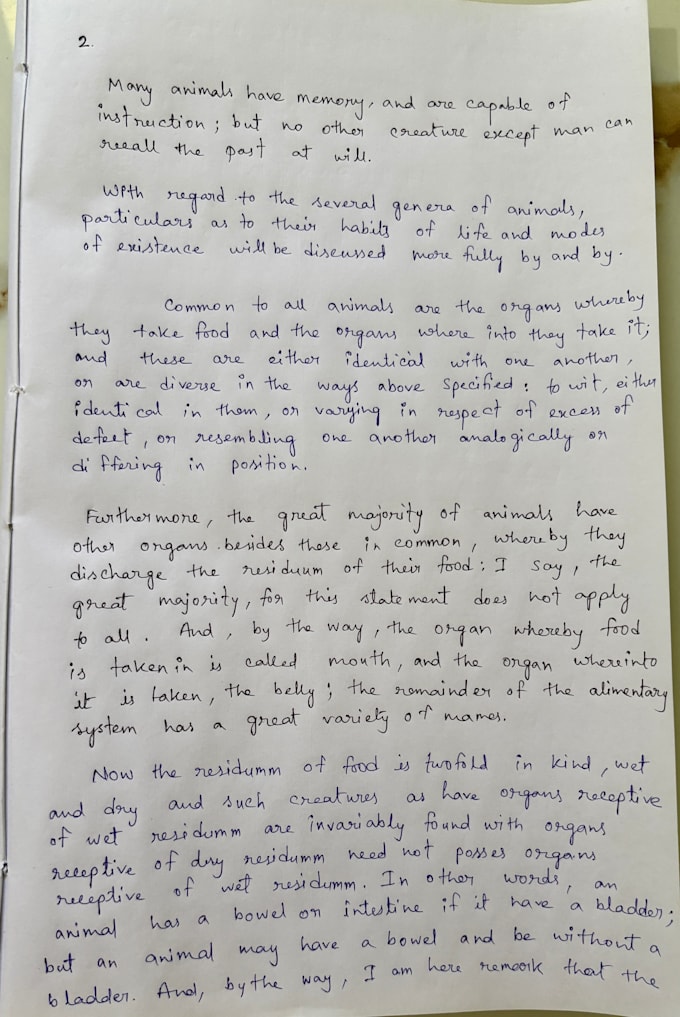 2.
Many animals have memory, and are capable of
instruction; but no other creature except man can
recall the past at will.
With regard to the several genera of animals,
particulars as to their habits of life and modes
of existence will be discussed more fully by and by.
Common to all animals are the organs whereby
they take food and the organs where into they take it;
and these are either identical with one another,
or are diverse in the ways above specified: to wit, either
identical in them, or varying in respect of excess of
defect, or resembling one another analogically or
differing in position.
Furthermore, the great majority of animals have
other organs besides these in common, whereby they
discharge the residuum of their food: I say, the
great majority, for this statement does not apply
to all. And, by the way, the organ whereby food
is taken in is called mouth, and the organ whereinto
it is taken, the belly; the remainder of the alimentary
system has a great variety of mames.
Now the residumm of food is twofold in kind, wet
and dry and such creatures as have organs receptive
of wet residumm are invariably found with organs
receptive of dry residumm need not posses organs
receptive of wet residumm. In other words, an
animal has a bowel or intestine if it have a bladder;
but an animal may have a bowel and be without a
bladder. And, by the way, I am here remark that the